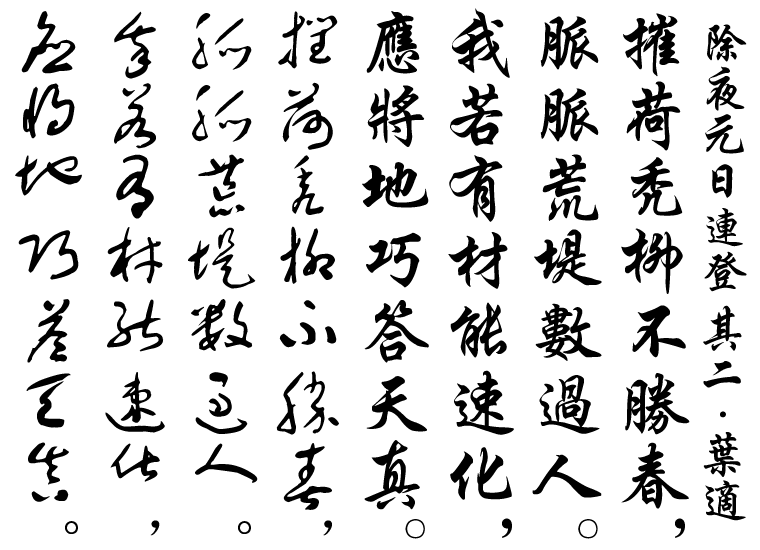 除夜元日連登 其二·葉適
摧荷禿柳不勝春，
脈脈荒堤數過人。
我若有材能速化，
應將地巧答天真。
摧荷禿柳不勝春，
脈脈荒堤數過人。
我若有材能速化，
應將地巧答天真。